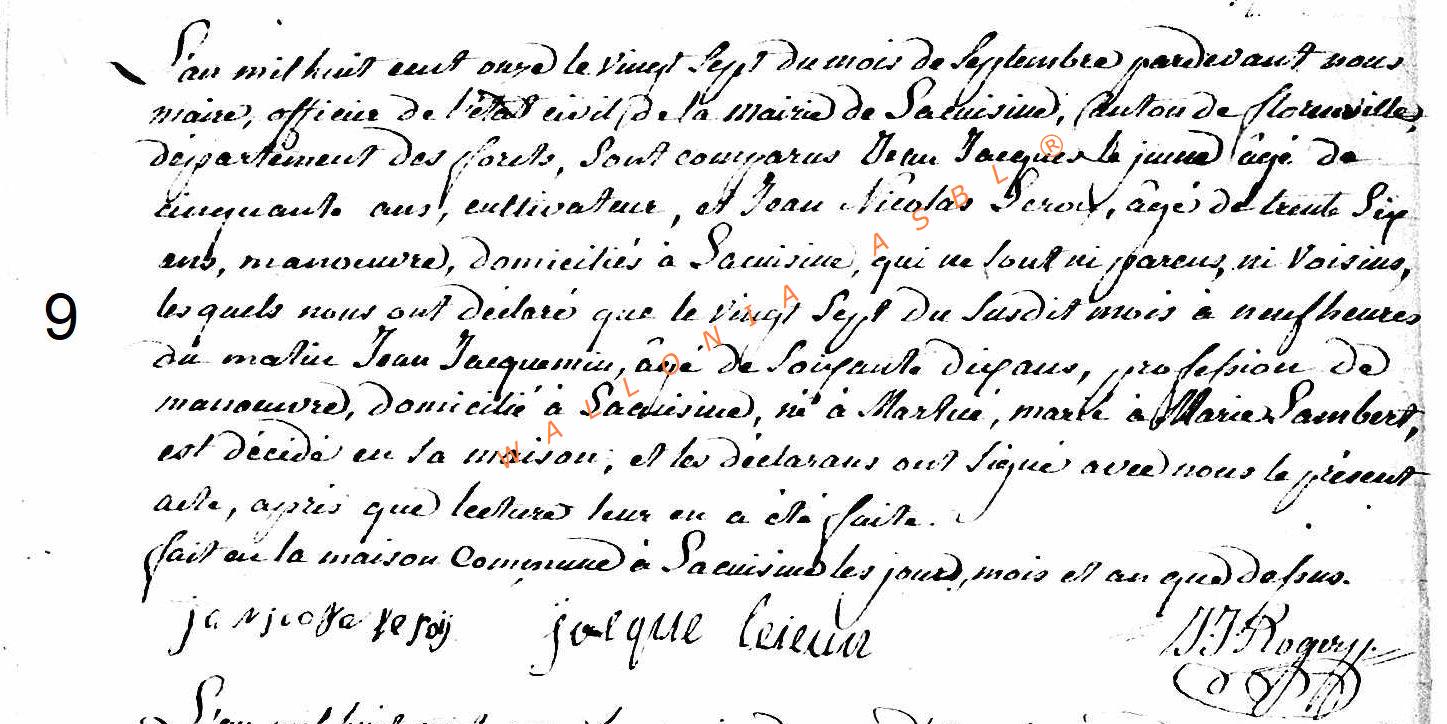 L'an mil huit cent onze le vingt sept du mois de Septembre pardevant nous
maire, officier de l'état civil de la mairie de Lacuisine, Canton de florenville,
département des forets, sont comparus Jean Jacques le jeune âgé de
cinquante ans, cultivateur, et Jean Nicolas, âgé de trente Six
ans, manoeuvre, domiciliés à Lacuisine, qui ne sont ni parens, ni Voisins,
9
les quels nous ont déclaré que le vingt Sept du Susdit mois à neuf heures
du matin Jean Jacquemin, âgé de Soixante dix ans, profession de
manoeuvre, domicilié à Lacuisine, né à Martué, marié à Marie Lambert,
est décédé en sa maison, et les déclarans ont Signé avec nous le présent
acte, après que lecture leur en a été faite.
fait en la maison Commune à Lacuisine les jour, mois et an que dessus.
jacque lejeun
JJ Rogery
L'an mil huit cent
WALLONIA ASBL ®